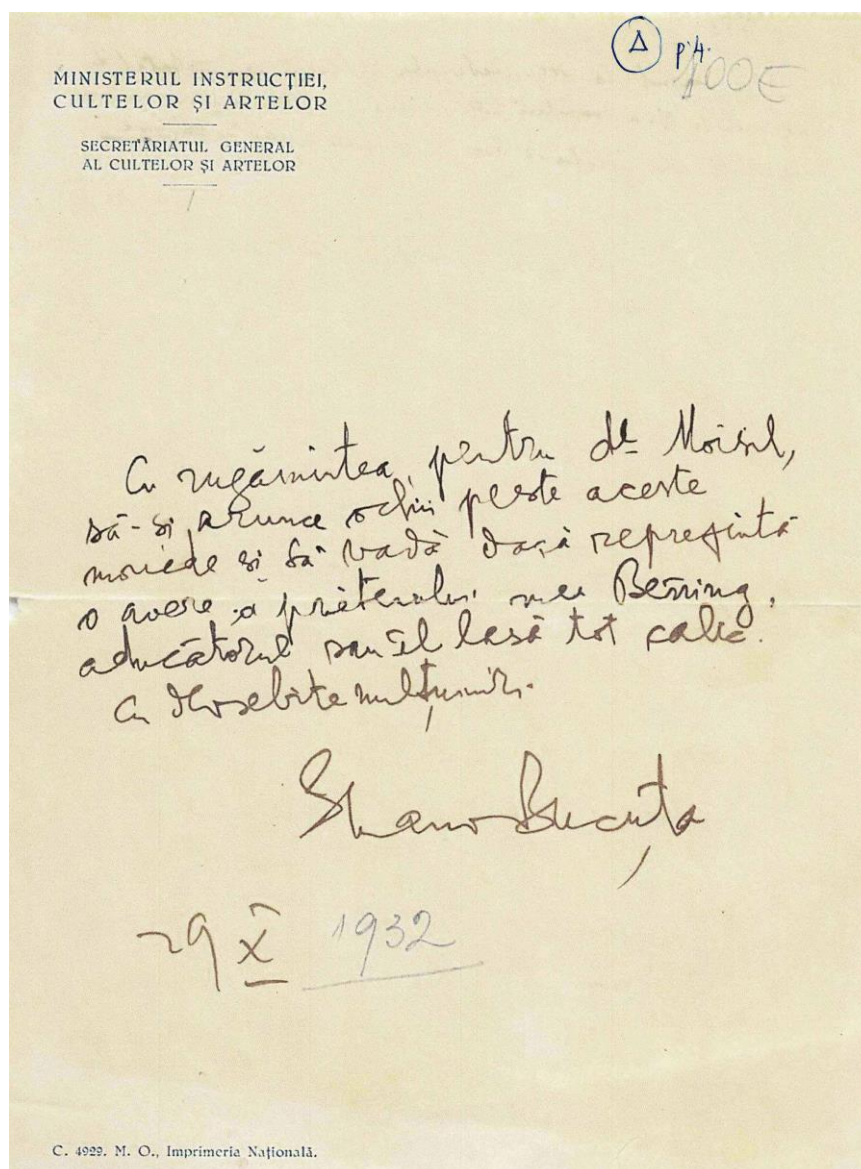 Δ p.4.
100€
MINISTERUL INSTRUCȚIEI,
CULTELOR ȘI ARTELOR
SECRETARIATUL GENERAL
AL CULTELOR ȘI ARTELOR
Cu rugămintea, pentru dl Moisil,
să-și arunce ochii peste aceste
monede și să vadă dacă reprezintă
o avere a prietenului meu
aducătorul sau îl lasă tot calic.
Cu deosebite mulțumiri.
Emanoil Bucuța
29 X 1932
C. 4922. M. O., Imprimeria Națională.